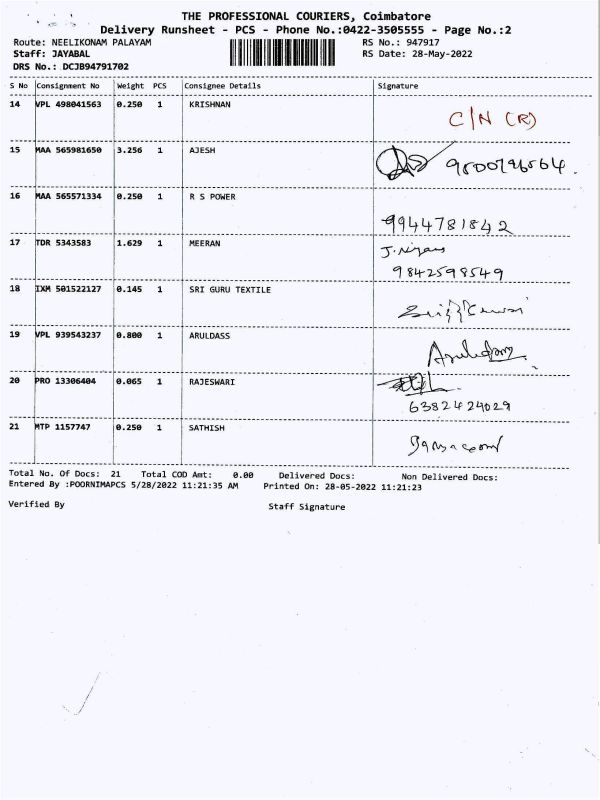 THE PROFESSIONAL COURIERS, Coimbatore
Delivery Runsheet - PCS - Phone No.:0422-3505555 - Page No.:2
Route: NEELIKONAM PALAYAM RS No.: 947917
Staff: JAYABAL RS Date: 28-May-2022
DRS No.: DCJB94791702
S No Consignment No Weight PCS Consignee Details Signature
14 VPL 498041563 0.250 1 KRISHNAN C/N (R)
15 MAA 565981650 3.256 1 AJESH
16 MAA 565571334 0.250 1 R S POWER 9944781842
17 TDR 5343583 1.629 1 MEERAN
9842598549
18 IXM 501522127 0.145 1 SRI GURU TEXTILE
19 VPL 939543237 0.800 1 ARULDASS
20 PRO 13306404 0.065 1 RAJESWARI
6382424029
21 MTP 1157747 0.250 1 SATHISH
Total No. Of Docs: 21 Total COD Amt: 0.00 Delivered Docs: Non Delivered Docs:
Entered By :POORNIMAPCS 5/28/2022 11:21:35 AM Printed On: 28-05-2022 11:21:23
Verified By Staff Signature